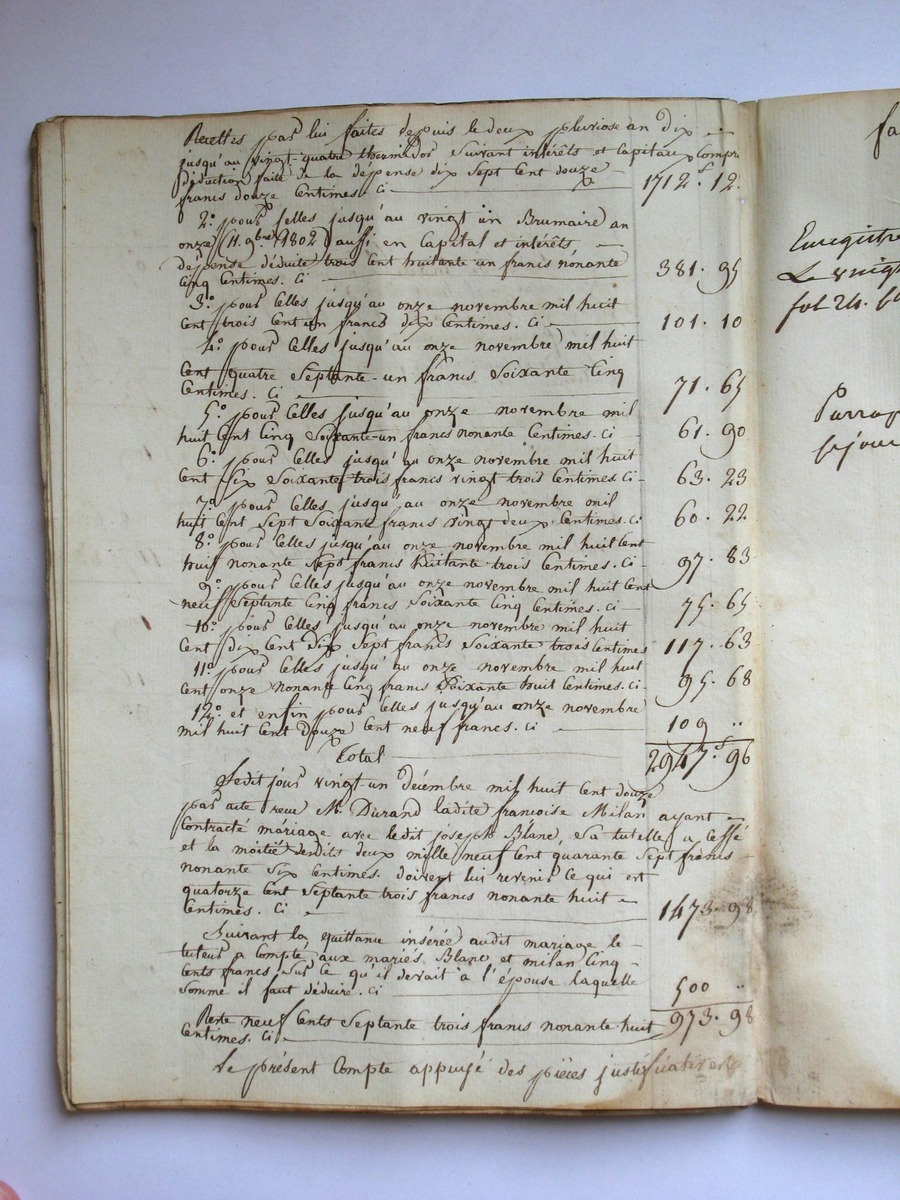 Recettes par lui faites depuis le deux pluviose an dix
jusqu'au vingt-quatre thermidor suivant intérêts et Capitaux compri
déduction faite de la dépense dix sept cent douze
francs douze Centimes. Ci 1712.f 12.
2.o pour selles jusqu'au vingt un Brumaire an
onze (11. 9bre 1802) aussi en Capital et intérêts
dépense déduite trois cent huitante un francs nonante
Cinq Centimes. Ci 381. 95
3.o pour Celles jusqu'au onze novembre mil huit
Cent trois Cent un francs dix Centimes. Ci 101. 10
4.o pour Celles jusqu'au onze novembre mil huit
Cent quatre Septante-un francs Soixante Cinq
Centimes. Ci 71. 65
5.o pour Celles jusqu'au onze novembre mil
huit Cent Cinq Soixante-un francs nonante Centimes. Ci 61. 90
6.o pour Celles jusqu'au onze novembre mil huit
Cent Six Soixante trois francs vingt trois Centimes. Ci 63. 23
7.o pour Celles jusqu'au onze novembre mil
huit Cent Sept Soixante francs vingt deux Centimes. Ci 60. 22
8.o pour Celles jusqu'au onze novembre mil huit Cent
huit nonante Sept francs huitante trois Centimes. Ci 97. 83
9.o pour Celles jusqu'au onze novembre mil huit Cent
neuf Septante Cinq francs Soixante Cinq Centimes. Ci 75. 65
10.o pour Celles jusqu'au onze novembre mil huit
Cent dix Cent dix Sept francs Soixante trois Centimes 117. 63
11.o pour Celles jusqu'au onze novembre mil huit
Cent onze nonante Cinq francs Soixante huit Centimes. Ci 95. 68
12.o et enfin pour Celles jusqu'au onze novembre
mil huit Cent Douze Cent neuf francs. Ci 109 ..
Total 2947.f 96
Ledit jour vingt-un décembre mil huit Cent douze
par acte reçu M.e Durand ladite francoise Milan ayant
Contracté mariage avec ledit joseph Blanc, Sa tutelle a Cessé
et la moitié desdits deux mille neuf Cent quarante Sept francs
nonante Six Centimes doivent lui revenir Ce qui est
quatorze Cent Septante trois francs nonante huit
Centimes. Ci 1473. 98
Suivant la quittance insérée audit mariage le
tuteur a Compté aux mariés Blanc et milan Cinq
Cents francs Sur Ce qu'il devait à l'épouse laquelle
Somme il faut déduire. Ci 500 ..
Reste neuf Cents Septante trois francs nonante huit 973. 98
Centimes. Ci
Le présent Compte appuyé des pièces justificatives
fa
Enregistré
Le vingt
fol 24.